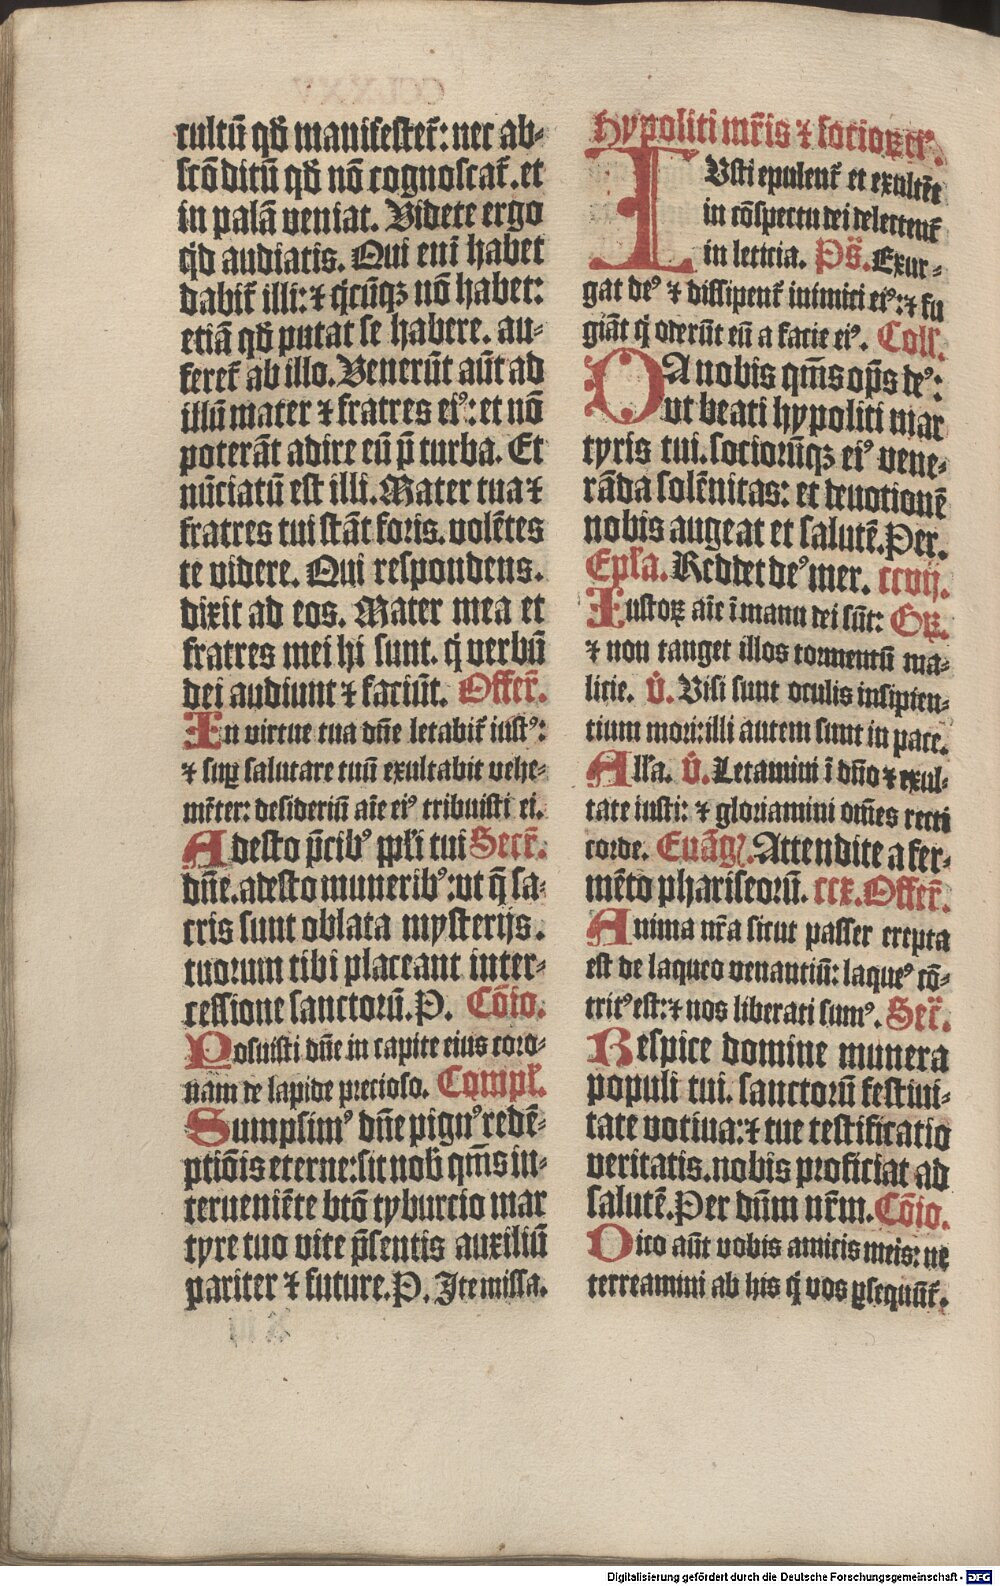 cultū qd̄ manifestet̄: nec ab-
scōditū qd̄ nō cognoscat̄. et
in palā veniat. Videte ergo
qͥd audiatis. Qui eni habet
dabit̄ illi: ⁊ qͥcūqꝫ nō habet:
etiā qd̄ putat se habere. au-
feret̄ ab illo. Venerūt aūt ad
illū mater ⁊ fratres eiꝰ: et nō
poterāt adire eū p̄ turba. Et
nūciatū est illi. Mater tua ⁊
fratres tui stāt foris. volētes
te videre. Qui respondens.
dixit ad eos. Mater mea et
fratres mei hi sunt. qͥ verbū
dei audiunt ⁊ faciūt. Offer̄.
In virtue tua dn̄e letabit̄ iustꝰ:
⁊ suꝑ salutare tuū exultabit vehe-
mēter: desideriū aīe eiꝰ tribuisti ei.
Adesto p̄cibꝰ pp̄li tui Secr̄.
dn̄e. adesto muneribꝰ: vt q̄ sa-
cris sunt oblata mysterijs.
tuorum tibi placeant inter-
cessione sanctorū. P. Cōio.
Posuisti dn̄e in capite eius coro-
nam de lapide precioso. Compl̄.
Sumpsimꝰ dn̄e pignꝰ redē-
ptiōis eterne: sit nob̄ qm̄s in-
terueniēte btō tyburcio mar
tyre tuo vite p̄sentis auxiliū
pariter ⁊ future. P. Ite missa.
Hypoliti mr̄is ⁊ socioꝝ eiꝰ.
IUsti epulent̄ et exultēt
in cōspectu dei delectent̄
in leticia. Ps̄. Exur-
gat deꝰ ⁊ dissipent̄ inimici eiꝰ: ⁊ fu
giāt qͥ oderūt eū a facie eiꝰ. Coll.
DA nobis qm̄s op̄s deꝰ:
vt beati hypoliti mar
tyris tui. sociorūqꝫ eiꝰ vene-
rāda solēnitas: et deuotionē
nobis augeat et salutē. Per.
Epl̄a. Reddet deꝰ mer. ccvij.
Iustoꝝ aīe ī manu dei sūt: Gꝝ.
⁊ non tanget illos tormentū ma-
licie. V̇. Visi sunt oculis insipien-
tium mori: illi autem sunt in pace.
Alla. V̇. Letamini ī dn̄o ⁊ exul-
tate iusti: ⁊ gloriamini om̄es recti
corde. Euāgl̄. Attendite a fer-
mēto phariseorū. ccx. Offer̄.
Anima nr̄a sicut passer erepta
est de laqueo venantiū: laqueꝰ cō-
tritꝰ est: ⁊ nos liberati sumꝰ. Sec̄.
Respice domine munera
populi tui. sanctorū festiui-
tate votiua: ⁊ tue testificatio
veritatis. nobis proficiat ad
salutē. Per dn̄m nr̄m. Cōio.
Dico aūt vobis amicis meis: ne
terreamini ab his qͥ vos ꝑsequūt̄.
Digitalisierung gefördert durch die Deutsche Forschungsgemeinschaft - DFG